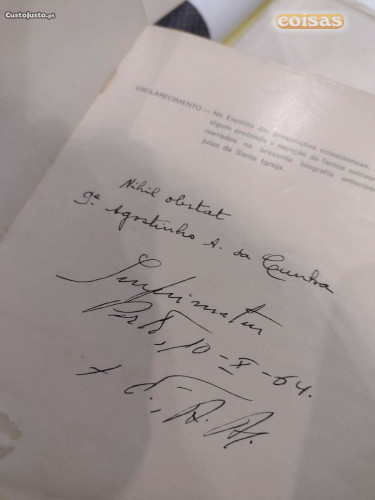 CustoJusto.pt
coisas
ESCLARECIMENTO — No Espírito das prescrições eclesiásticas,
algum pretende a menção de factos extraor
narrados na presente biografia antecipa
juízo da Santa Igreja.
Nihil obstat
P.e Agostinho A. da Cunha
Imprimatur
Porto, 10-X-64.
+ F., A. A.